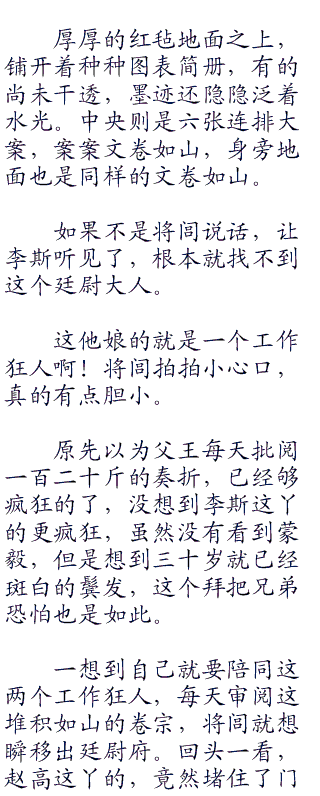 厚厚的红毡地面之上，
铺开着种种图表简册，有的
尚未干透，墨迹还隐隐泛着
水光。中央则是六张连排大
案，案案文卷如山，身旁地
面也是同样的文卷如山。
如果不是将闾说话，让
李斯听见了，根本就找不到
这个廷尉大人。
这他娘的就是一个工作
狂人啊！将闾拍拍小心口，
真的有点胆小。
原先以为父王每天批阅
一百二十斤的奏折，已经够
疯狂的了，没想到李斯这丫
的更疯狂，虽然没有看到蒙
毅，但是想到三十岁就已经
斑白的鬓发，这个拜把兄弟
恐怕也是如此。
一想到自己就要陪同这
两个工作狂人，每天审阅这
堆积如山的卷宗，将闾就想
瞬移出廷尉府。回头一看，
赵高这丫的，竟然堵住了门